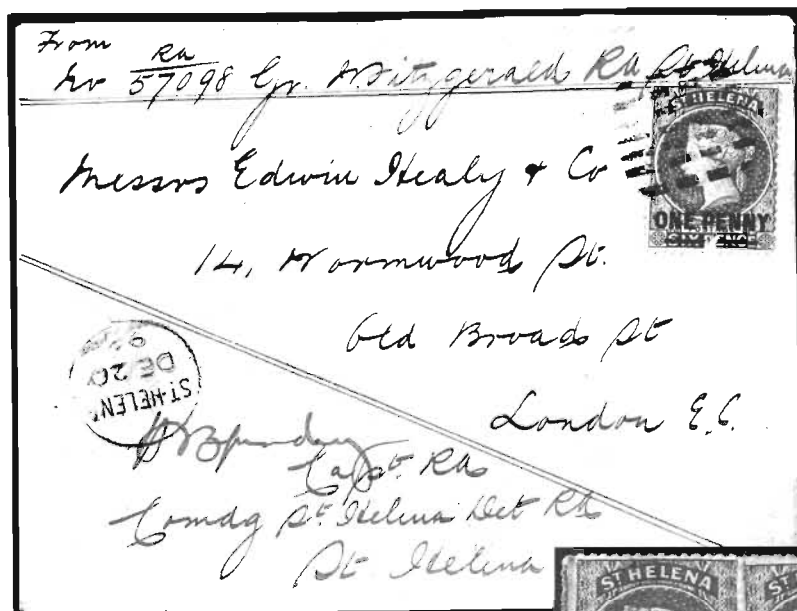 From
No RA/57098 Gr. Fitzgerald RA St Helena
ST HELENA
Messrs Edwin Healy & Co
ONE PENNY
SIXPENCE
14, Wormwood St.
Old Broad St
London E.C.
ST. HELENA
DE 20
Capt. RA
Comdg St. Helena Det RA
St. Helena
ST HELENA